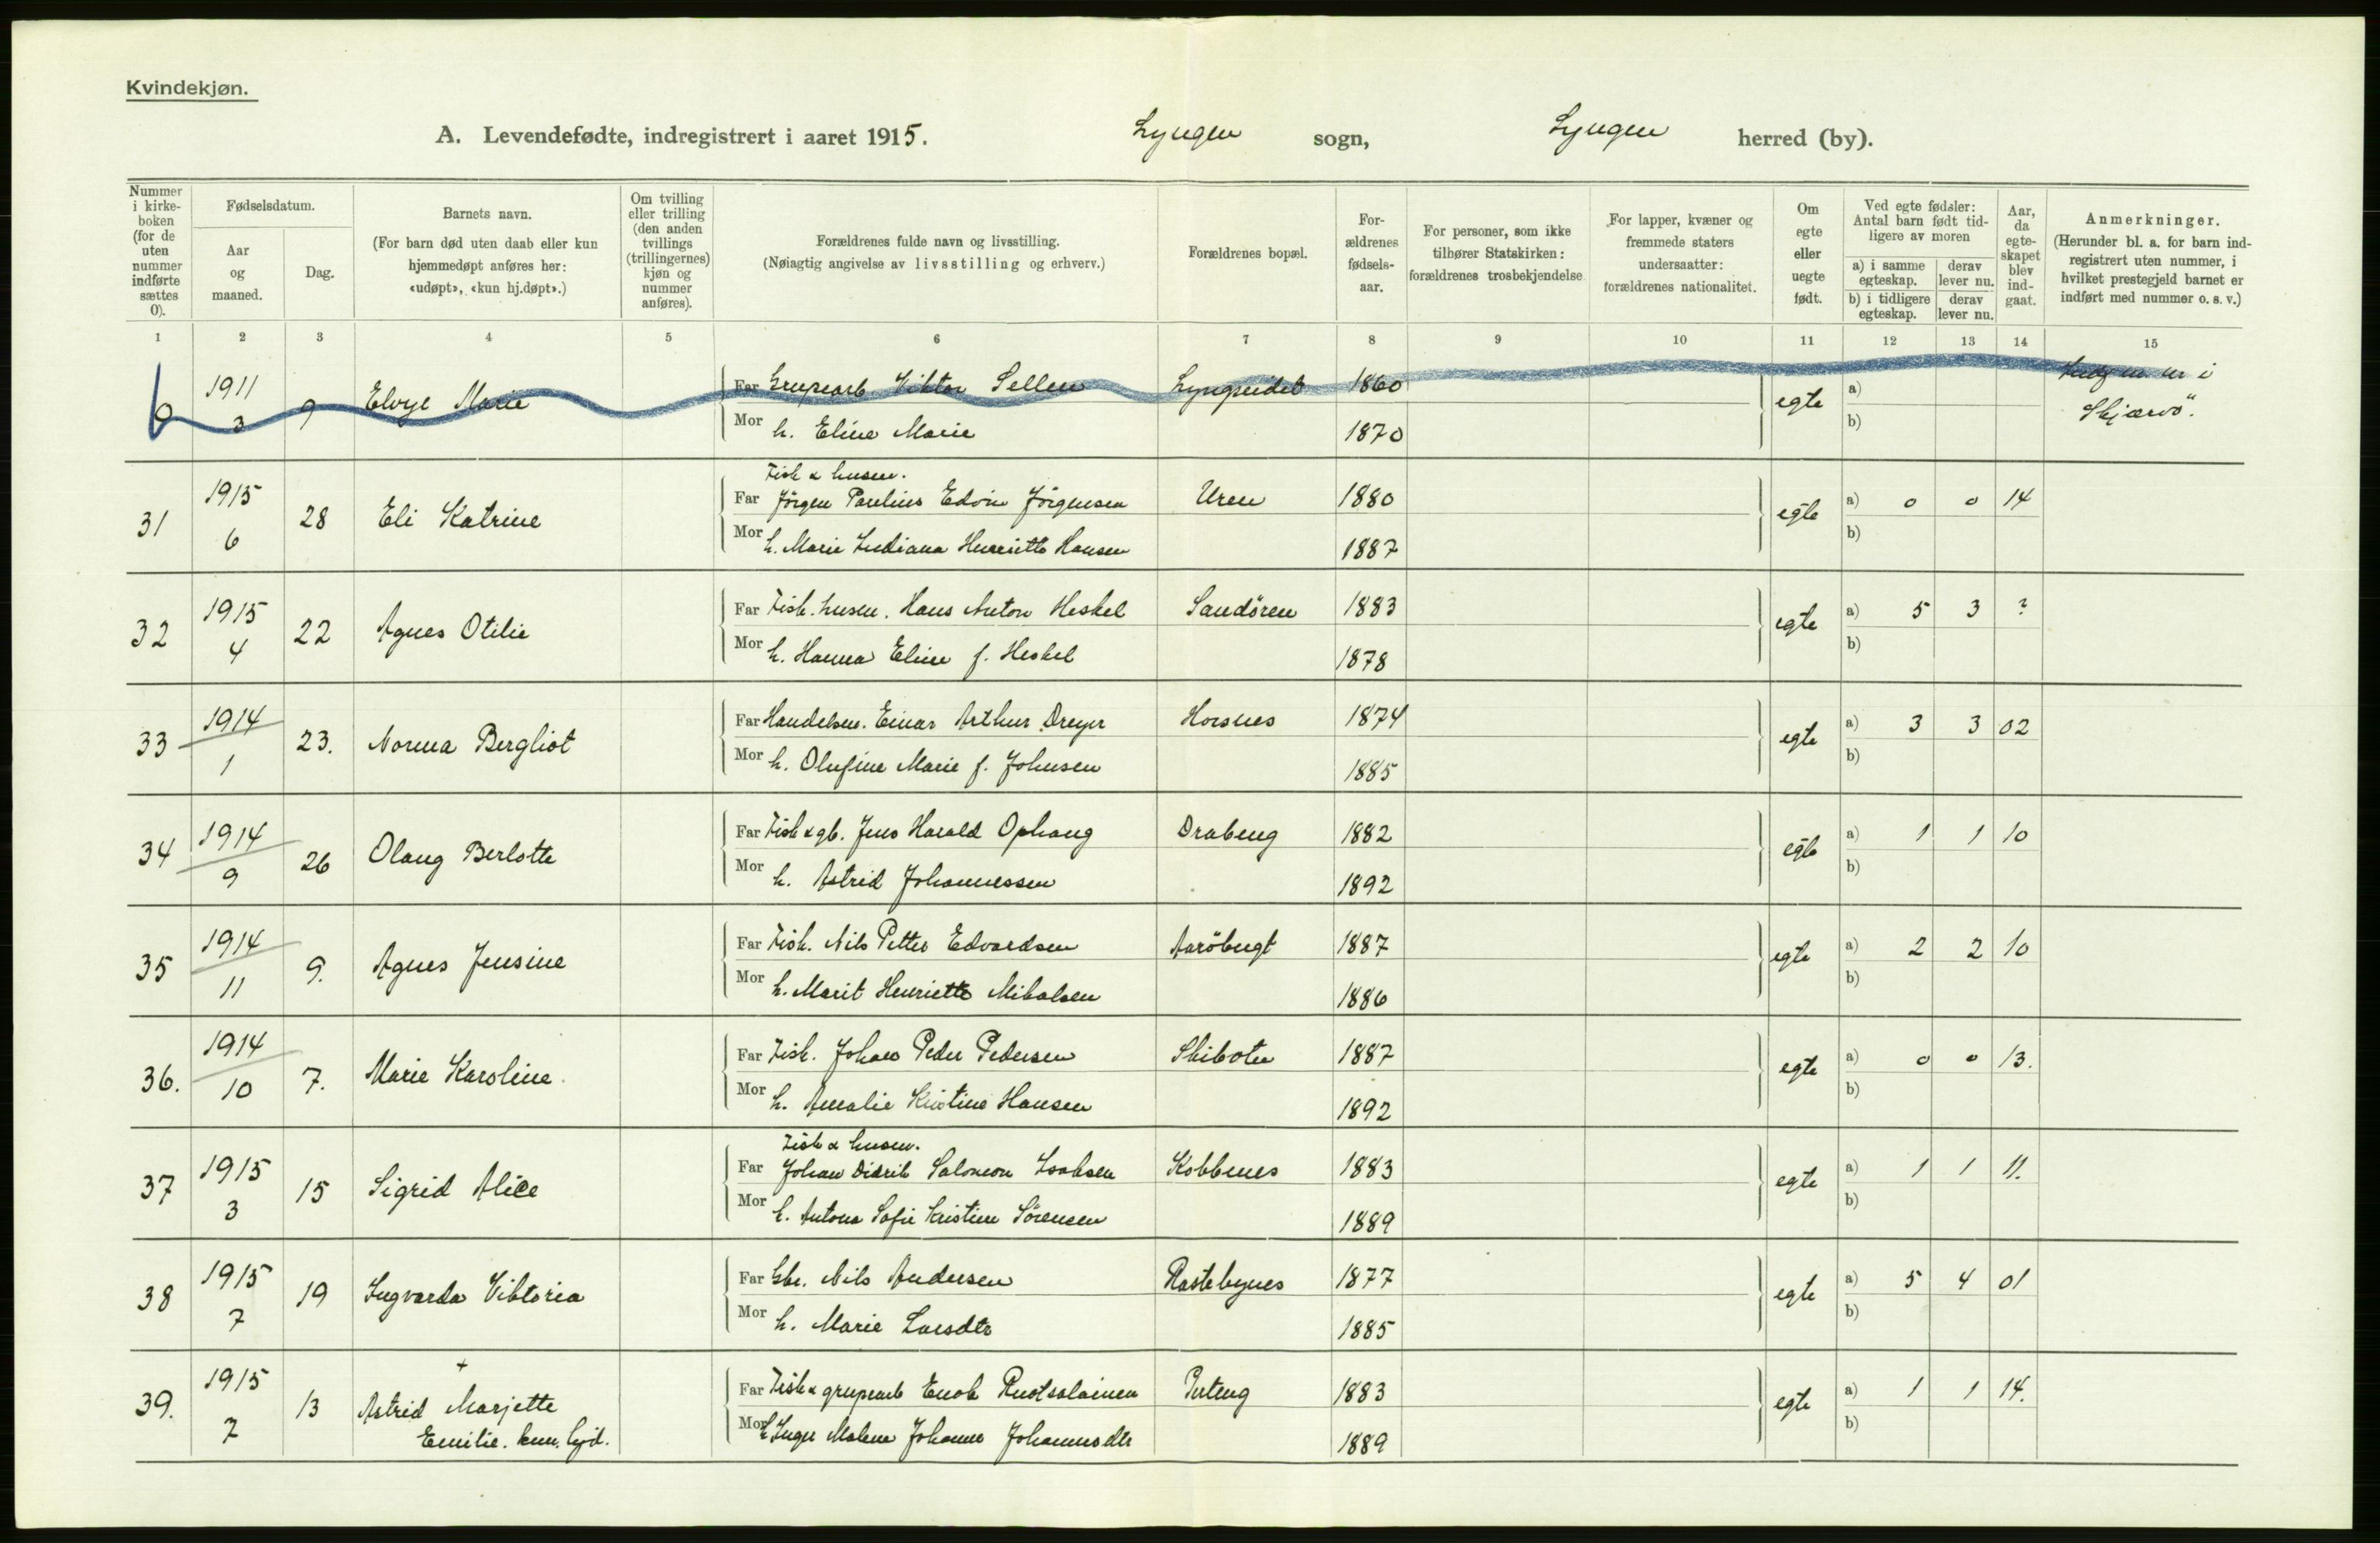 Kvindekjøn.
A. Levendefødte, indregistrert i aaret 1915. Lyngen sogn, Lyngen herred (by).
Nummer i kirkeboken (for de uten nummer indførte sættes 0).
Fødselsdatum.
Aar og maaned.
Dag.
Barnets navn.
(For barn død uten daab eller kun hjemmedøpt anføres her: «udøpt», «kun hj.døpt».)
Om tvilling eller trilling (den anden tvillings (trillingernes) kjøn og nummer anføres).
Forældrenes fulde navn og livsstilling.
(Nøiagtig angivelse av livsstilling og erhverv.)
Forældrenes bopæl.
Forældrenes fødselsaar.
For personer, som ikke tilhører Statskirken: forældrenes trosbekjendelse
For lapper, kvæner og fremmede staters undersaatter: forældrenes nationalitet.
Om egte eller uegte født.
Ved egte fødsler: Antal barn født tidligere av moren
a) i samme egteskap. derav lever nu.
b) i tidligere egteskap. derav lever nu.
Aar, da egteskapet blev indgaat.
Anmerkninger.
(Herunder bl. a. for barn indregistrert uten nummer, i hvilket prestegjeld barnet er indført med nummer o. s. v.)
1 2 3 4 5 6 7 8 9 10 11 12 13 14 15
0 1911 3 9 Marie Far Viktor Lyngseidet 1860 egte a)
Mor h. Eline Marie 1870 b)
i Skjærvö".
Fisk & husm.
31 1915 6 28 Eli Katrine Far Jörgen Paulius Edvin Jörgensen Uren 1880 egte a) 0 0 14
Mor h. Marie Henriette Hansen 1887 b)
32 1915 4 22 Agnes Otilie Far Fisk. husm. Hans Anton Heskel Sandören 1883 egte a) 5 3 ?
Mor h. Hanna Eline f. Heskel 1878 b)
33 1914 1 23. Norma Bergliot Far Handelsm. Einar Arthur Dreyer Horsnes 1874 egte a) 3 3 02
Mor h. Olufine Marie f. Johnsen 1885 b)
34 1914 9 26 Olaug Berlotte Far Fisk & gb. Jens Harald Ophaug Drabeng 1882 egte a) 1 1 10
Mor h. Astrid Johannessen 1892 b)
35 1914 11 9. Agnes Jensine Far Fisk. Nils Petter Edvardsen Aaröbugt 1887 egte a) 2 2 10
Mor h. Marit Henriette Mikalsen 1886 b)
36. 1914 10 7. Marie Karoline Far Fisk. Johan Peder Pedersen Skibotn 1887 egte a) 0 0 13.
Mor h. Amalie Kristine Hansen 1892 b)
Fisk & husm.
37 1915 3 15 Sigrid Alice Far Johan Didrik Salomon Isaksen Kobbenes 1883 egte a) 1 1 11.
Mor h. Antona Sofie Kristine Sörensen 1889 b)
38 1915 7 19 Ingvarda Viktoria Far Gbr. Nils Andersen Rastebynes 1877 egte a) 5 4 01
Mor h. Marie Larsdtr 1885 b)
+
39. 1915 7 13 Astrid Marjette Far Fisk & grupearb Enok Ruotsalainen 1883 egte a) 1 1 14.
Emilie. kun hjd. Mor h. Inger Malene Johanne Johannesdtr 1889 b)